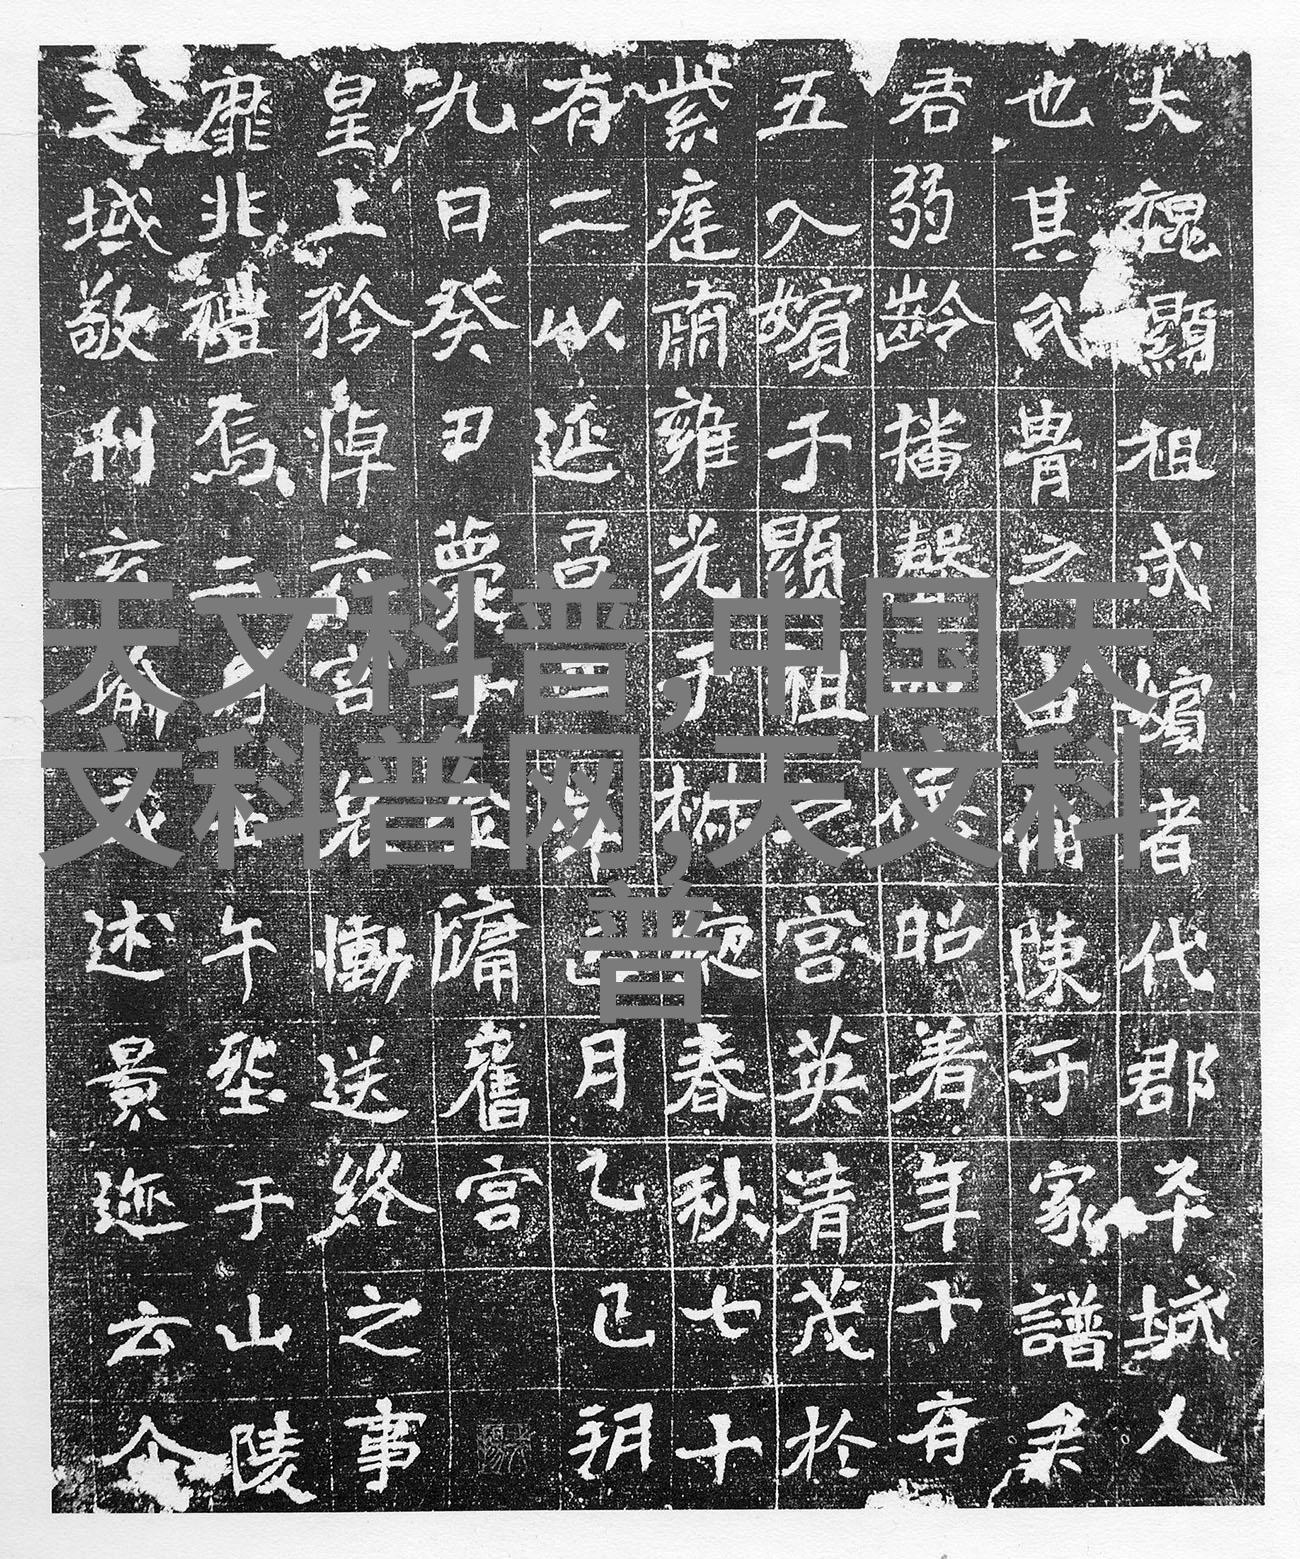 大魏顯祖成嬪者代郡平城人
也其氏曹之陳于家譜矣
君弱齡播馨昭着年十有
五入嬪于顯祖之宮英清茂於
紫庭肅雍光于椒庭春秋七十
有二以延昌月乙巳朔
九日癸丑薨于金墉舊宮
皇上矜悼六宮哀慟送終之事
靡非禮焉二月甲午塟于山陵
之域敬刊玄瑜式述景迹云尒
天文科普,中国天
文科普网,天文科
普